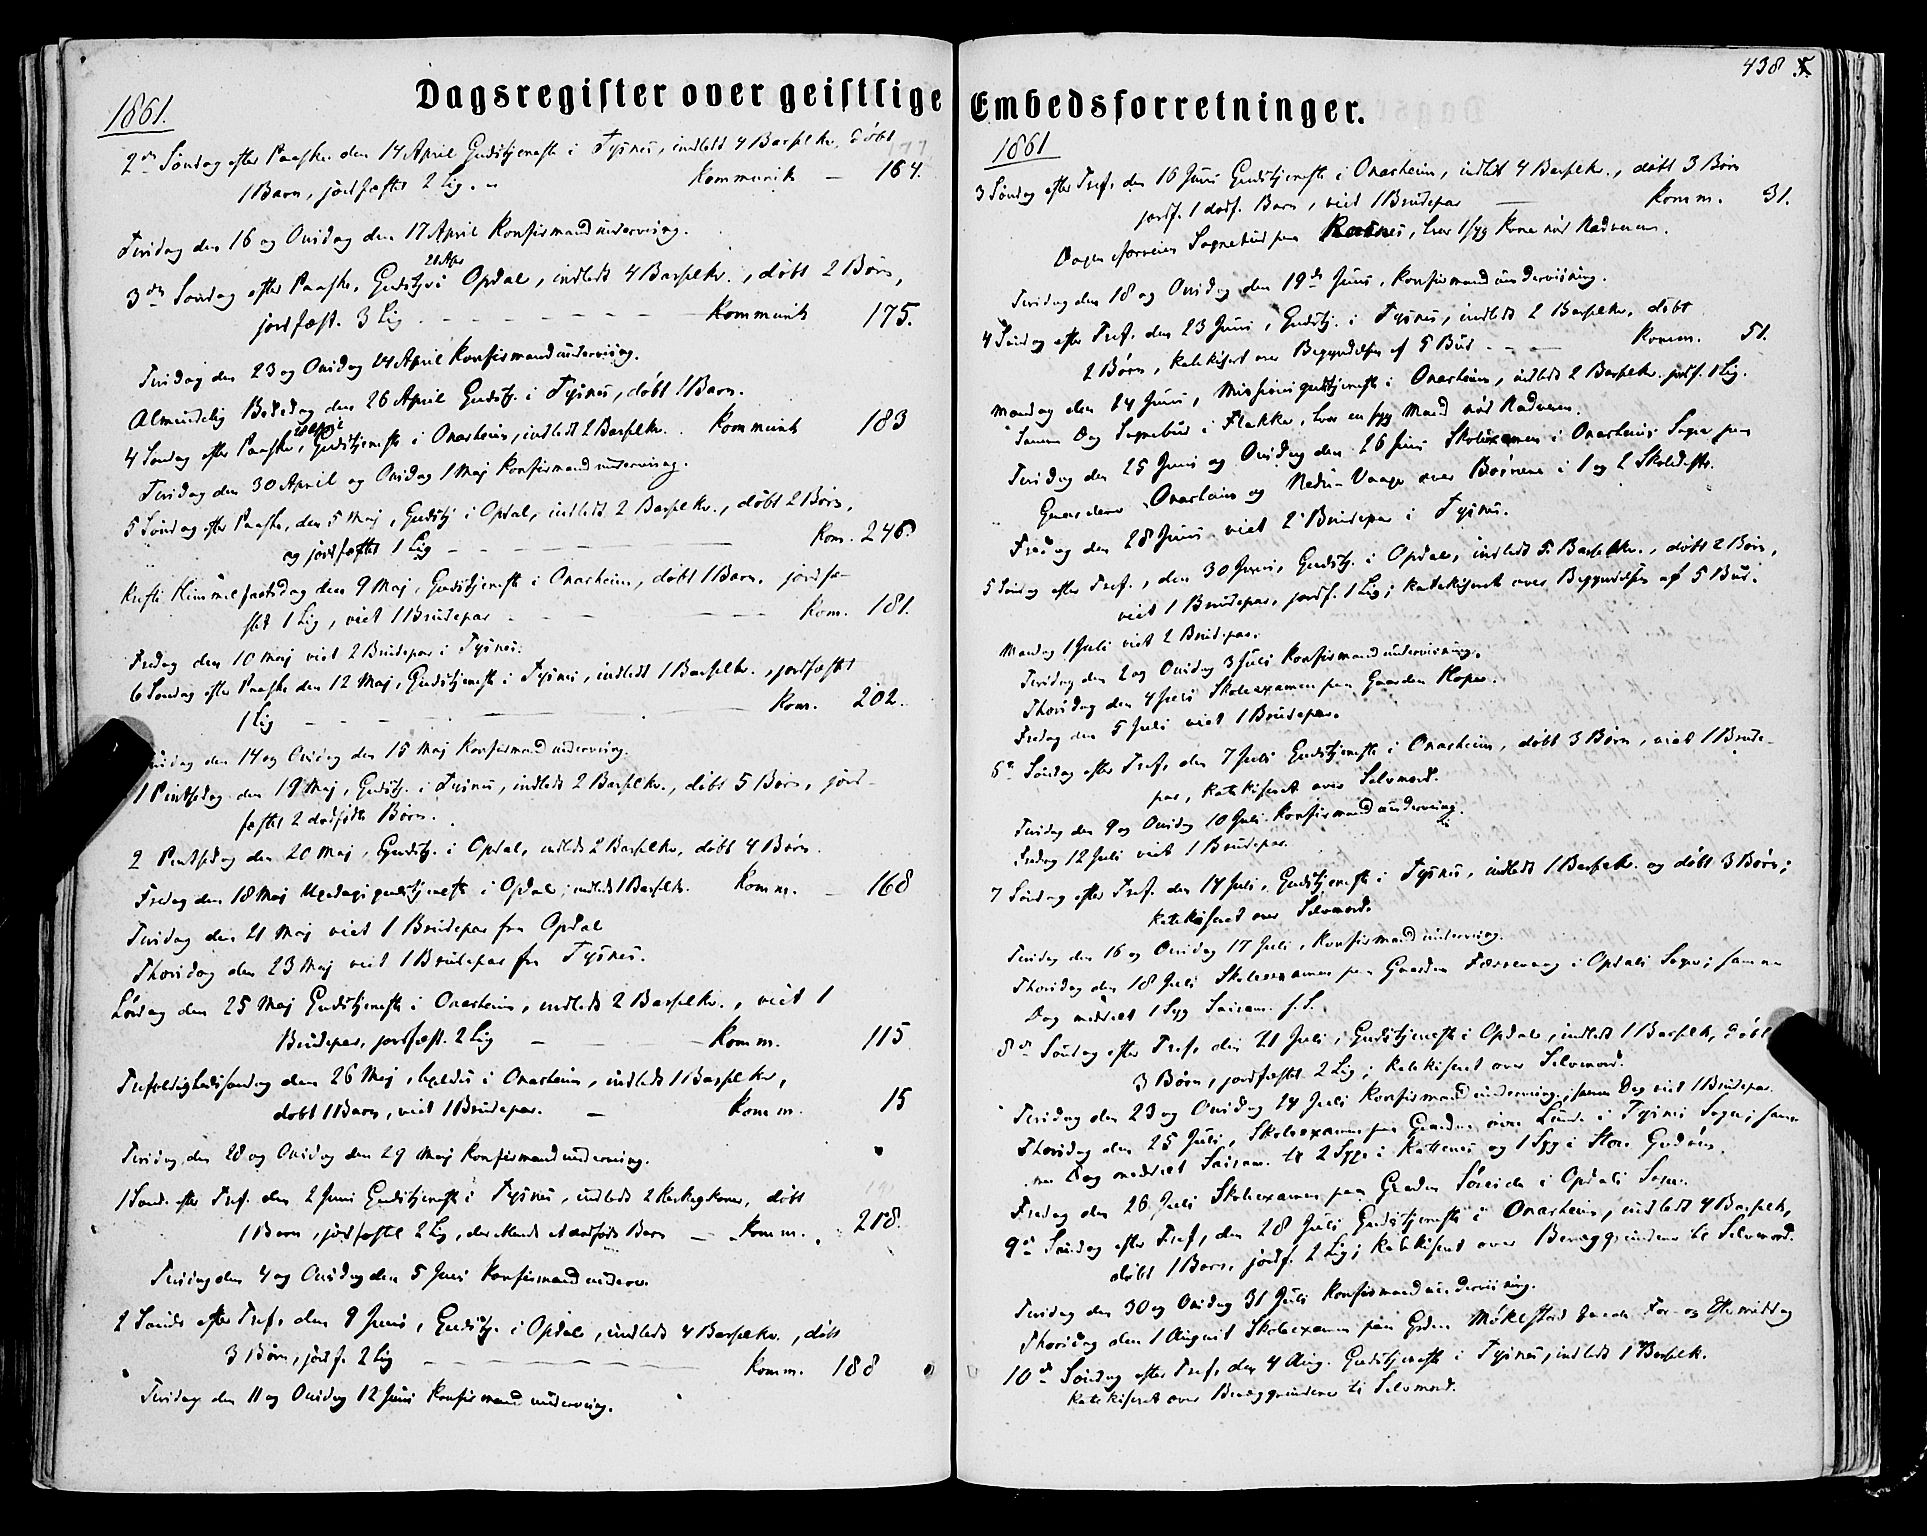 Dagsregister over geistlige
1861.
2den Søndag efter Paaske den 14 April Gudstjeneste i Tysnes, indledt 4 Barselkv. døbt
1 Barn, jordfæstet 2 Lig. Kommunik — 164.
Tirsdag den 16 og Onsdag den 17 April Konfirmandundervisng.
21 Apr
3die Søndag efter Paaske, Gudstj. i Opdal, indledt 4 Barselkv., døbt 2 Børn,
jordfæst. 3 Lig — Kommunik 175.
Tirsdag den 23 og Onsdag 24 April Konfirmandundervisng.
Almindelig Bededag den 26 April Gudstj. i Tysnes, døbt 1 Barn.
28 April
4 Søndag efter Paaske, Gudstjeneste i Onarheim, indledt 2 Barselkv. Kommunik 183
Tirsdag den 30 April og Onsdag 1 Maj Konfirmandundervisng.
5 Søndag efter Paaske, den 5 Maj, Gudstj i Opdal, indledt 2 Barselkv., døbt 2 Børn,
og jordfæstet 1 Lig — Kom. 246
Kristi Himmelfartsdag den 9 Maj, Gudstjeneste i Onarheim, døbt 1 Barn, jordfæ-
stet 1 Lig, viet 1 Brudepar — Kom. 181.
Fredag den 10 Maj viet 2 Brudepar i Tysnes.
6 Søndag efter Paaske den 12 Maj, Gudstjeneste i Tysnes, indledt 1 Barselkv., jordfæstet
1 Lig — Kom. 202.
den 14 og Onsdag den 15 Maj Konfirmandundervisng.
1 Pintsedag den 19 Maj, Gudstj. i Tysnes, indledt 2 Barselkv., døbt 5 Børn, jord-
fæstet 2 dødfødte Børn.
2 Pintsedag den 20 Maj, Gudstj. i Opdal, indledt 2 Barselkv, døbt 4 Børn.
Fredag den 18 Maj gudstjeneste i Opdal, indledt 1 Barselkv. Komm. — 168
Tirsdag den 21 Maj viet 1 Brudepar fra Opdal
Thorsdag den 23 Maj viet 1 Brudepar fra Tysnes.
Lørdag den 25 Maj Gudstjeneste i Onarheim, indledt 2 Barselkv., viet 1
Brudepar, jordfæst. 2 Lig — Komm. 115
Trefoldighedssøndag den 26 Maj, i Onarheim, indledt 1 Barselkv,
døbt 1 Barn, viet 1 Brudepar. — Komm. 15
Tirsdag den 28 og Onsdag den 29 Maj Konfirmandundervisng.
1 Sønd. efter Tref. den 2 Juni Gudstjeneste i Tysnes, indledt 2 Kirkegkoner, døbt
1 Barn, jordfæstet 2 Lig, dødfødt Barn — Komm. 218.
Tirsdag den 4 og Onsdag den 5 Juni Konfirmandunderv.
2 Sønd. efter Tref. den 9 Juni, Gudstj. i Opdal, indledt 4 Barselkv., døbt
3 Børn, jordf. 2 Lig — Komm. 188
Tirsdag den 11 og Onsdag 12 Juni Konfirmandundervisng.
438
Embedsforretninger.
1861
3 Søndag efter Tref. den 16 Juni Gudstjeneste i Onarheim, indledt 4 Barselkv., døbt 3 Børn
jordf. 1 dødf. Barn, viet 1 Brudepar — Komm. 31.
Dagen forveien Sognebud paa , hos 1 syg Kone nær Nadveren.
Tirsdag den 18 og Onsdag den 19de Juni, Konfirmandundervisning.
4 Søndag efter Tref. den 23 Juni, Gudstj. i Tysnes, indledt 2 Barselkv. døbt
2 Børn, katekiseret over Begyndelsen af 5 Bud — Komm. 51.
Mandag den 24 Juni, Missionsgudstjeneste i Onarheim, indledt 2 Barselkv. jordf. 1 Lig.
Samme Dag Sognebud i Flakke, hos en syg Mand nær Nadveren.
Tirsdag den 25 Juni og Onsdag den 26 Juni Skoleexamen i Onarheims Sogn paa
Gaardene Onarheim og Nedre-Vaage over Børnene i 1 og 2 Skoledistr.
Fredag den 28 Juni viet 2 Brudepar i Tysnes.
5 Søndag efter Tref., den 30 Juni, Gudstj. i Opdal, indledt 5 Barselkv., døbt 2 Børn,
viet 1 Brudepar, jordf. 1 Lig; katekiseret over Begyndelsen af 5 Bud.
Mandag 1 Juli viet 2 Brudepar.
Tirsdag den 2 og Onsdag 3 Juli Konfirmandundervisning.
Thorsdag den 4 Juli Skoleexamen paa Gaarden Hope.
Fredag den 5 Juli viet 1 Brudepar.
6te Søndag efter Tref. den 7 Juli Gudstjeneste i Onarheim, døbt 3 Børn, viet 1 Brude-
par, katekiseret over Selvmord.
Tirsdag den 9 og Onsdag 10 Juli Konfirmandundervisng.
Fredag 12 Juli viet 1 Brudepar.
7 Søndag efter Tref. den 14 Juli, Gudstjeneste i Tysnes, indledt 1 Barselkv. og døbt 3 Børn;
katekiseret over Selvmord.
Tirsdag den 16 og Onsdag 17 Juli, Konfirmandundervisng.
Thorsdag den 18 Juli Skoleexamen paa Gaarden Færrevaag i Opdals Sogn; samme
Dag meddelt 1 Syg Sacram.
8de Søndag efter Tref. den 21 Juli, Gudstjeneste i Opdal, indledt 1 Barselk, døbt
3 Børn, jordfæstet 2 Lig; katekiseret over Selvmord.
Tirsdag den 23 og Onsdag 24 Juli Konfirmandundervisng.; samme Dag viet 1 Brudepar.
Thorsdag den 25 Juli, Skoleexamen paa Gaarden øvre Lunde i Tysnes Sogn; sam-
me Dag meddelt Sacram. til 2 Syge i og 1 Syg i Store Godøen.
Fredag den 26 Juli Skoleexamen paa Gaarden Søreide i Opdals Sogn.
9de Søndag efter Tref. den 28 Juli Gudstjeneste i Onarheim, indledt 4 Barselk,
døbt 1 Barn, jordf. 2 Lig; katekiseret over Bevæggrundene til Selvmord.
Tirsdag den 30 og Onsdag 31 Juli Konfirmandundervisning.
Thorsdag den 1 August Skoleexamen paa Grden Møkestad For- og Eftermiddag
10de Søndag efter Tref. den 4 Aug. Gudstjeneste i Tysnes, indledt 1 Barselk.
katekiseret over Bevæggrundene til Selvmord.